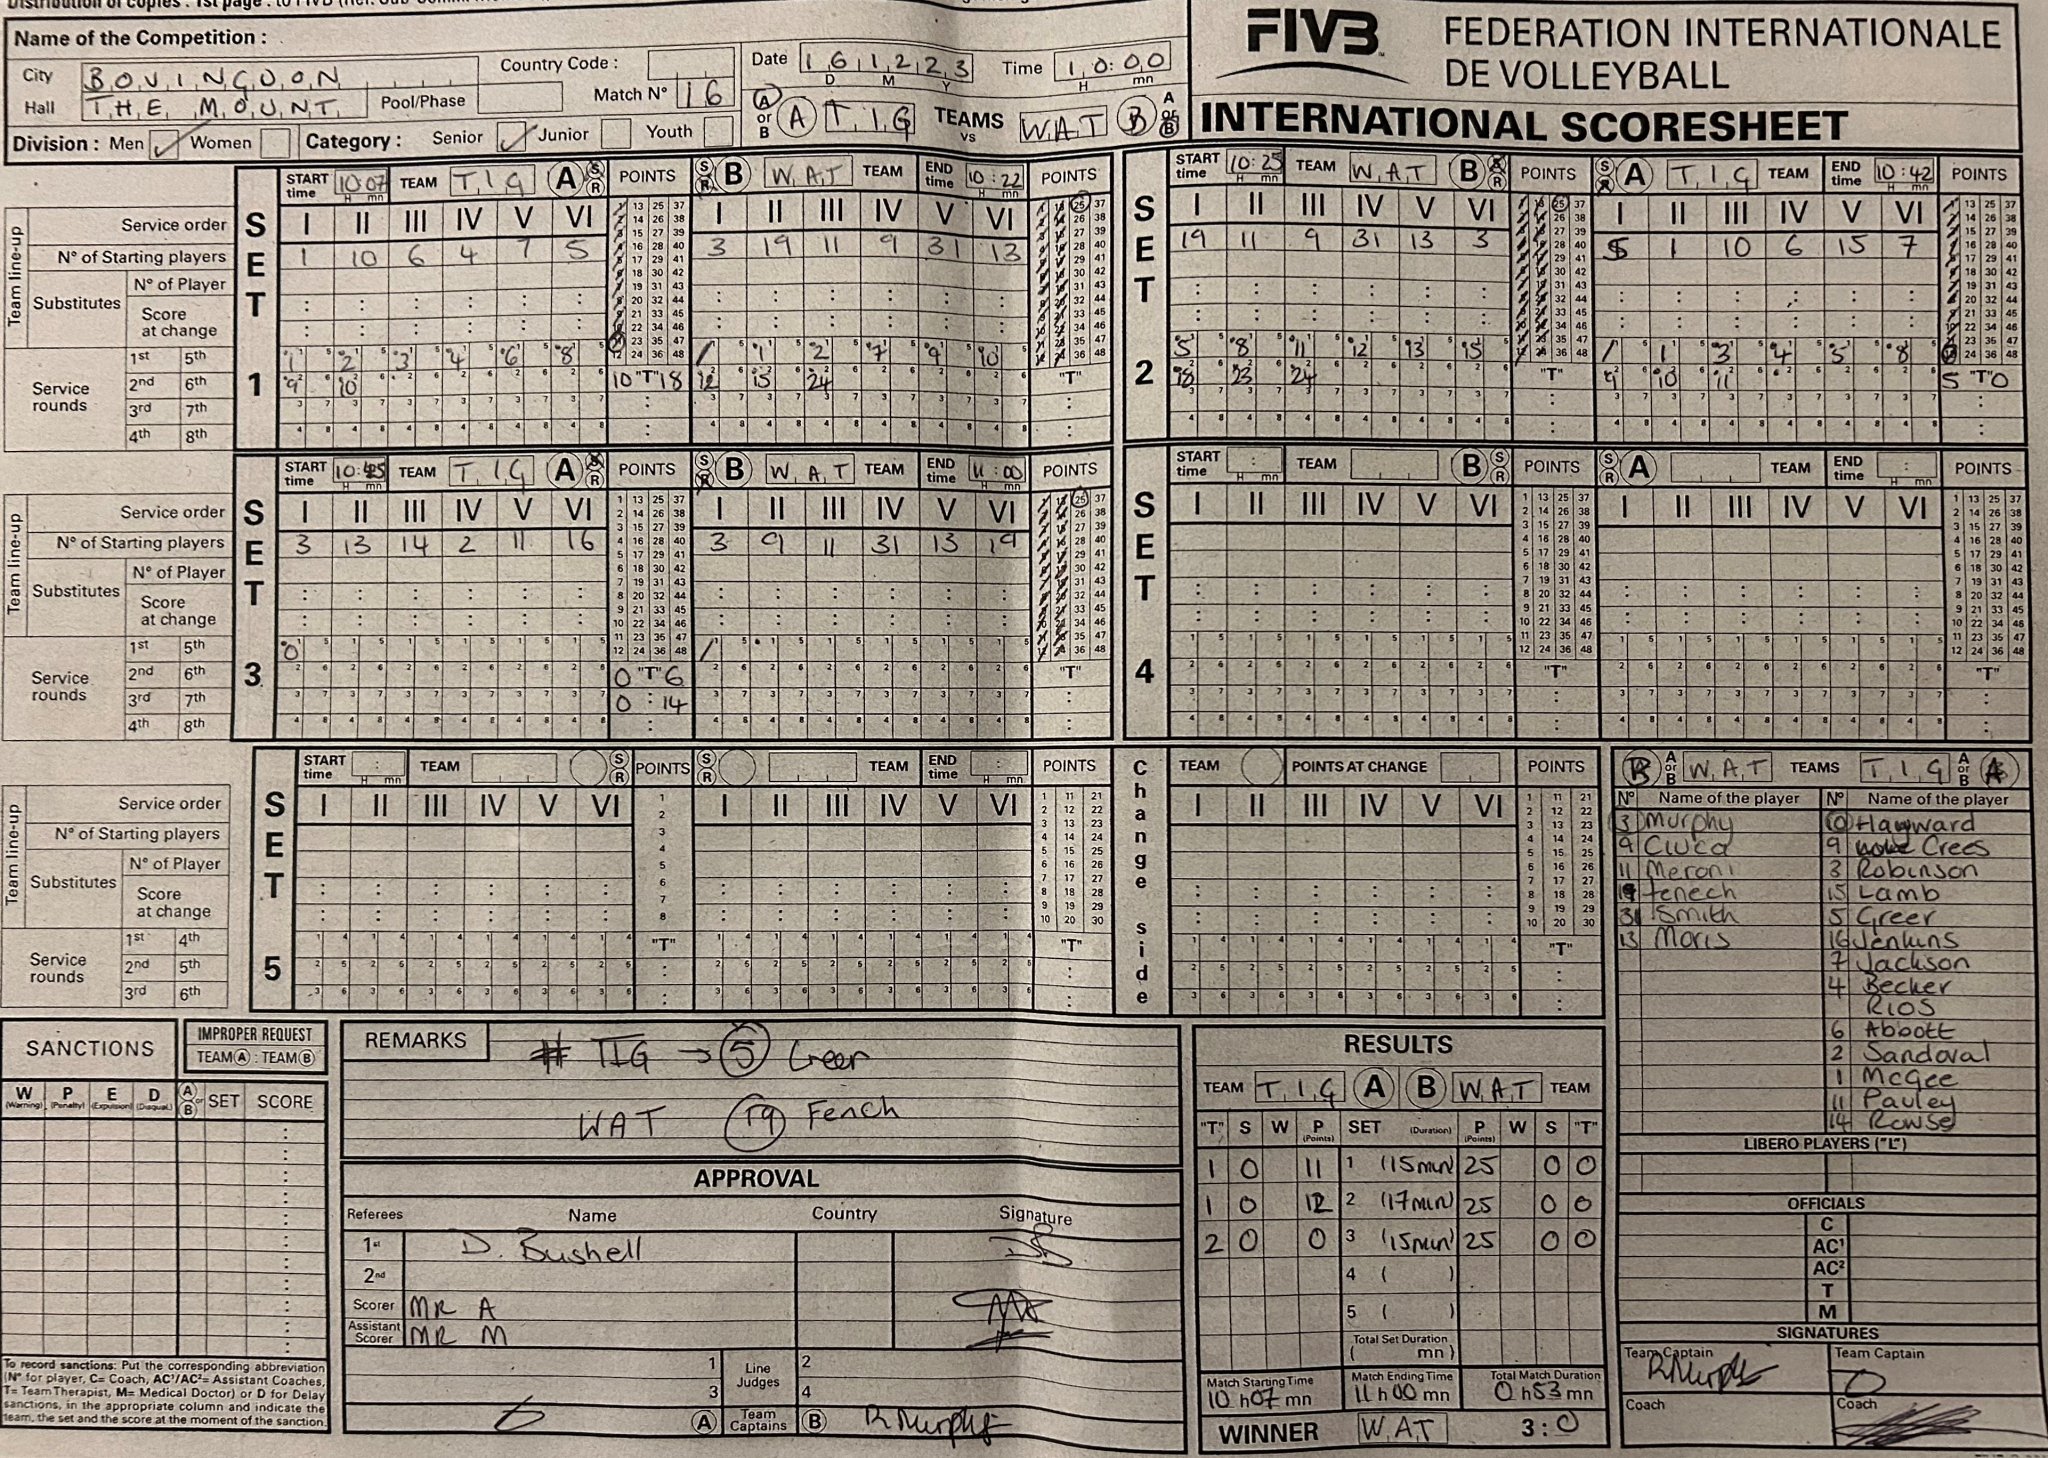 Name of the Competition :
City BOVINGDON Country Code :
Hall THE MOUNT Pool/Phase Match N° 16
Division : Men Women Category : Senior Junior Youth
Date 16 12 23 Time 10:00
D M Y H mn
A or B A TIG TEAMS vs WAT B A or B
FIVB
FEDERATION INTERNATIONALE
DE VOLLEYBALL
INTERNATIONAL SCORESHEET
SET 1
START time 10:07 TEAM TIG A S R POINTS
S R B WAT TEAM END time 10:22 POINTS
Service order I II III IV V VI I II III IV V VI
N° of Starting players 1 10 6 4 7 5 3 19 11 9 31 13
Team line-up
Substitutes N° of Player
Score at change
Service rounds
1st 5th 1 2 3 4 6 8 1 2 7 9 10
2nd 6th 9 10 10 "T" 18 12 15 24 "T"
3rd 7th
4th 8th
SET 2
START time 10:25 TEAM WAT B S R POINTS
S R A TIG TEAM END time 10:42 POINTS
I II III IV V VI I II III IV V VI
19 11 9 31 13 3 5 1 10 6 15 7
5 8 11 12 13 15 1 3 4 5 8
18 23 24 "T" 9 10 11 5 "T" 0
SET 3
START time 10:45 TEAM TIG A S R POINTS
S R B WAT TEAM END time 11:00 POINTS
Service order I II III IV V VI I II III IV V VI
N° of Starting players 3 13 14 2 11 16 3 9 11 31 13 19
Team line-up
Substitutes N° of Player
Score at change
Service rounds
1st 5th 0
2nd 6th 0 "T" 6 "T"
3rd 7th 0 : 14
4th 8th
SET 4
START time TEAM B S R POINTS
S R A TEAM END time POINTS
I II III IV V VI I II III IV V VI
"T" "T"
SET 5
START time TEAM S R POINTS
S R TEAM END time POINTS
Service order I II III IV V VI I II III IV V VI
N° of Starting players
Team line-up
Substitutes N° of Player
Score at change
Service rounds
1st 4th
2nd 5th
3rd 6th
"T" "T"
Change side
TEAM POINTS AT CHANGE POINTS
I II III IV V VI
"T"
B A or B WAT TEAMS TIG A or B A
N° Name of the player N° Name of the player
3 Murphy 10 Hayward
9 Ciuca 9 Crees
11 Meroni 3 Robinson
19 Fenech 15 Lamb
31 Smith 5 Greer
13 Moris 16 Jenkins
7 Jackson
4 Becker
RIOS
6 Abbott
2 Sandoval
1 McGee
11 Pauley
14 Rowse
LIBERO PLAYERS ("L")
OFFICIALS
C
AC¹
AC²
T
M
SIGNATURES
Team Captain Team Captain
R Murphy
Coach Coach
SANCTIONS
IMPROPER REQUEST
TEAM A : TEAM B
W (Warning) P (Penalty) E (Expulsion) D (Disqual.) A or B SET SCORE
To record sanctions: Put the corresponding abbreviation
(N° for player, C= Coach, AC¹/AC²= Assistant Coaches,
T= Team Therapist, M= Medical Doctor) or D for Delay
sanctions, in the appropriate column and indicate the
team, the set and the score at the moment of the sanction.
REMARKS
TIG → 5 Greer
WAT 19 Fench
APPROVAL
Referees Name Country Signature
1st D. Bushell
2nd
Scorer MR A
Assistant Scorer MR M
1 Line Judges 2
3 4
A Team Captains B R Murphy
RESULTS
TEAM TIG A B WAT TEAM
"T" S W P (Points) SET (Duration) P (Points) W S "T"
1 0 11 1 (15min) 25 0 0
1 0 12 2 (17min) 25 0 0
2 0 0 3 (15min) 25 0 0
4 ( )
5 ( )
Total Set Duration
( mn )
Match Starting Time Match Ending Time Total Match Duration
10 h 07 mn 11 h 00 mn 0 h 53 mn
WINNER WAT 3 : 0